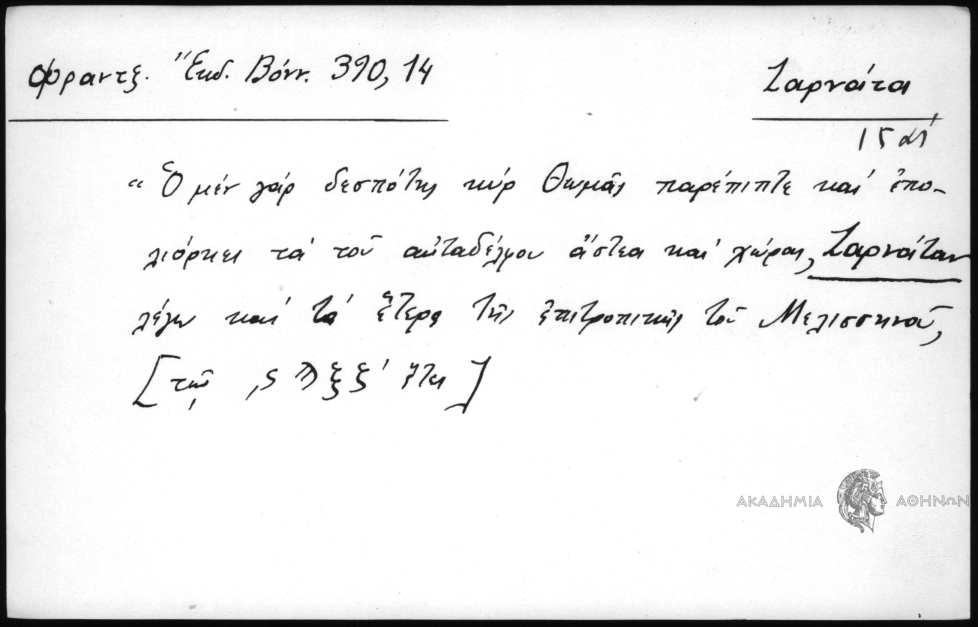 Φραντζ. Ἔκδ. Βόνν. 390, 14
Ζαρνάτα
15 αἰ
" Ὁ μέν γάρ δεσπότης κύρ Θωμᾶς παρέπιπτε καί ἐπο-
λιόρκει τά τοῦ αὐταδέλφου ἄστεα καί χώρας, Ζαρνάταν
λέγω καί τά ἕτερα τῆς ἐπιτροπικῆς τοῦ Μελισσηνοῦ,
[τῷ ͵ϛϠξξ' ἔτει]
ΑΚΑΔΗΜΙΑ ΑΘΗΝΩΝ